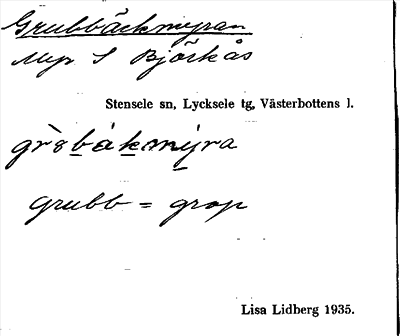 Grubbäckmyran
Myr S Björkås
Stensele sn, Lycksele tg, Västerbottens l.
grubb = grop
Lisa Lidberg 1935.